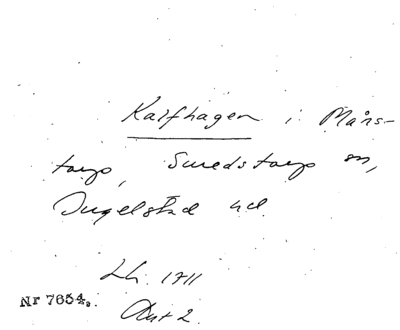 Kalfhagen i Måns-
torp, Smedstorps sn,
Ingelstad hd.
Lh. 1711
Akt 2.
Nr 7654.